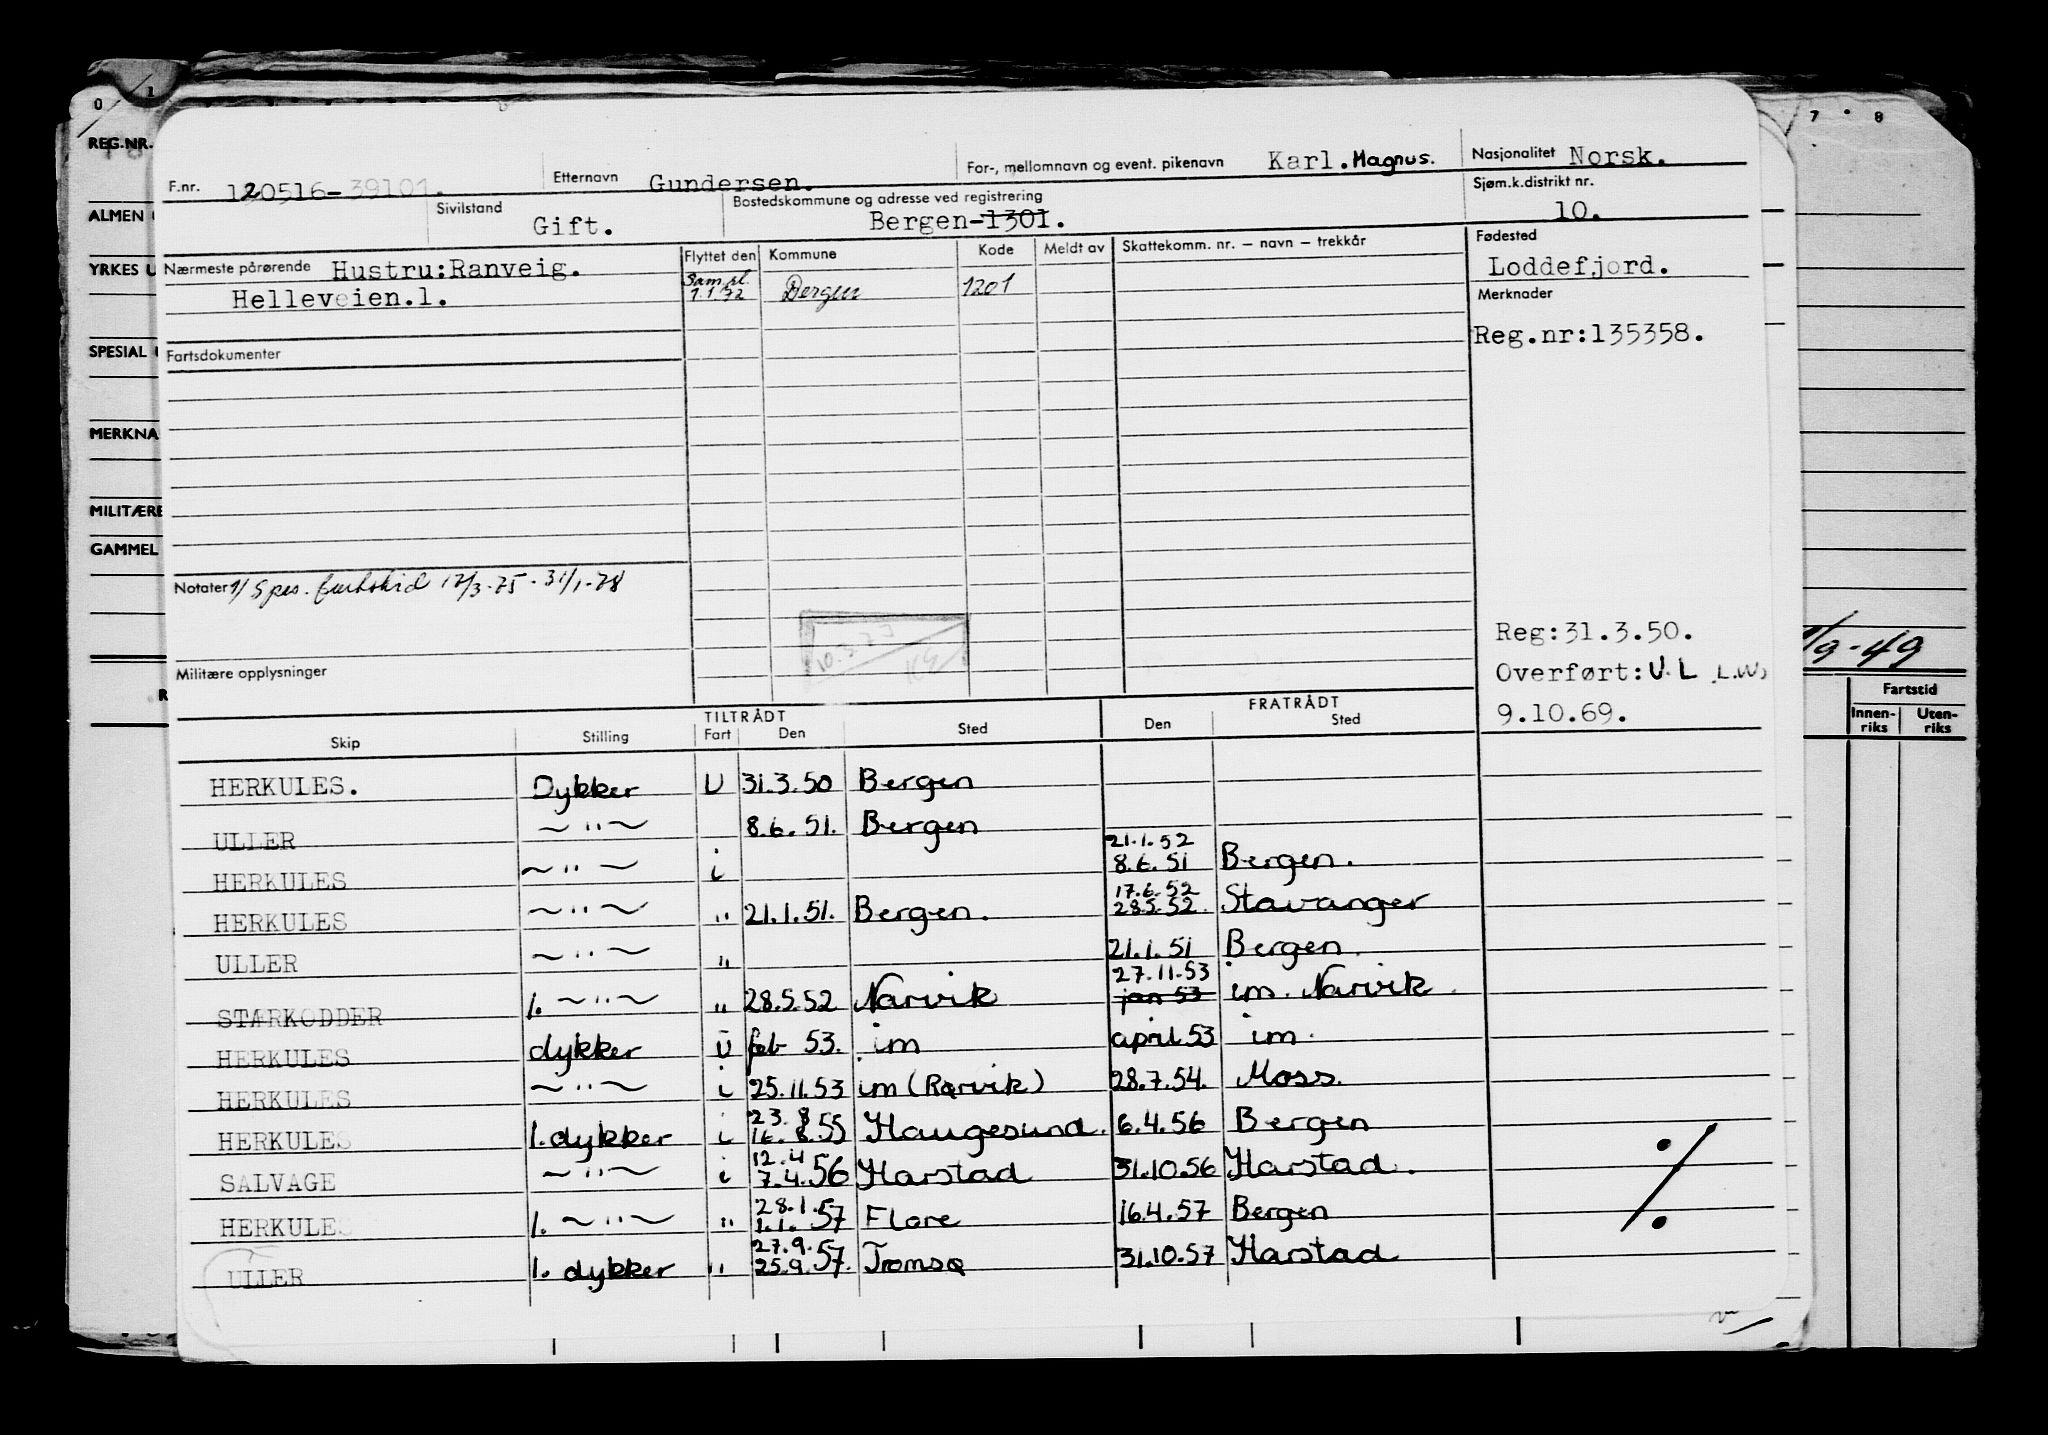 F.nr. 120516-39101. Etternavn Gundersen. For-, mellomnavn og event. pikenavn Karl. Magnus. Nasjonalitet Norsk.
Sivilstand Gift. Bostedskommune og adresse ved registrering Bergen-1301. Sjøm.k.distrikt nr. 10.
Nærmeste pårørende Hustru:Ranveig. Flyttet den Kommune Kode Meldt av Skattekomm. nr. — navn — trekkår Fødested
Helleveien.1. Sam.sl. 1.1.72 Bergen 1201 Loddefjord.
Merknader
Reg.nr:135358.
Fartsdokumenter
Notater 1/ Spes. 17/3-75 - 31/1-78
10.5.73
Reg:31.3.50.
Militære opplysninger
Overført: U. L L.W.
9.10.69.
TILTRÅDT FRATRÅDT
Skip Stilling Fart Den Sted Den Sted
HERKULES. Dykker U 31.3.50 Bergen
ULLER ~"~ 8.6.51. Bergen
21.1.52
HERKULES ~"~ i 8.6.51 Bergen.
17.6.52
HERKULES ~"~ " 21.1.51. Bergen. 28.5.52. Stavanger
ULLER ~"~ " 21.1.51 Bergen.
27.11.53
STÆRKODDER 1. ~"~ " 28.5.52 Narvik jan 53 im. Narvik.
HERKULES dykker U feb 53. im april 53 im.
HERKULES ~"~ i 25.11.53 im (Rørvik) 28.7.54. Moss.
23.8
HERKULES 1. dykker i 16.8.55 Haugesund. 6.4.56 Bergen
12.4
SALVAGE ~"~ i 7.4.56 Harstad 31.10.56 Harstad.
28.1.57
HERKULES 1. ~"~ " 1.1.57 Florø 16.4.57 Bergen
27.9.
ULLER 1. dykker " 25.9.57. Tromsø 31.10.57 Harstad
./.
0 1
REG.NR.
ALMEN
YRKES U
SPESIAL
MERKNA
MILITÆRE
GAMMEL
R
7 8
1/9-49
Fartstid
Innen-riks Uten-riks